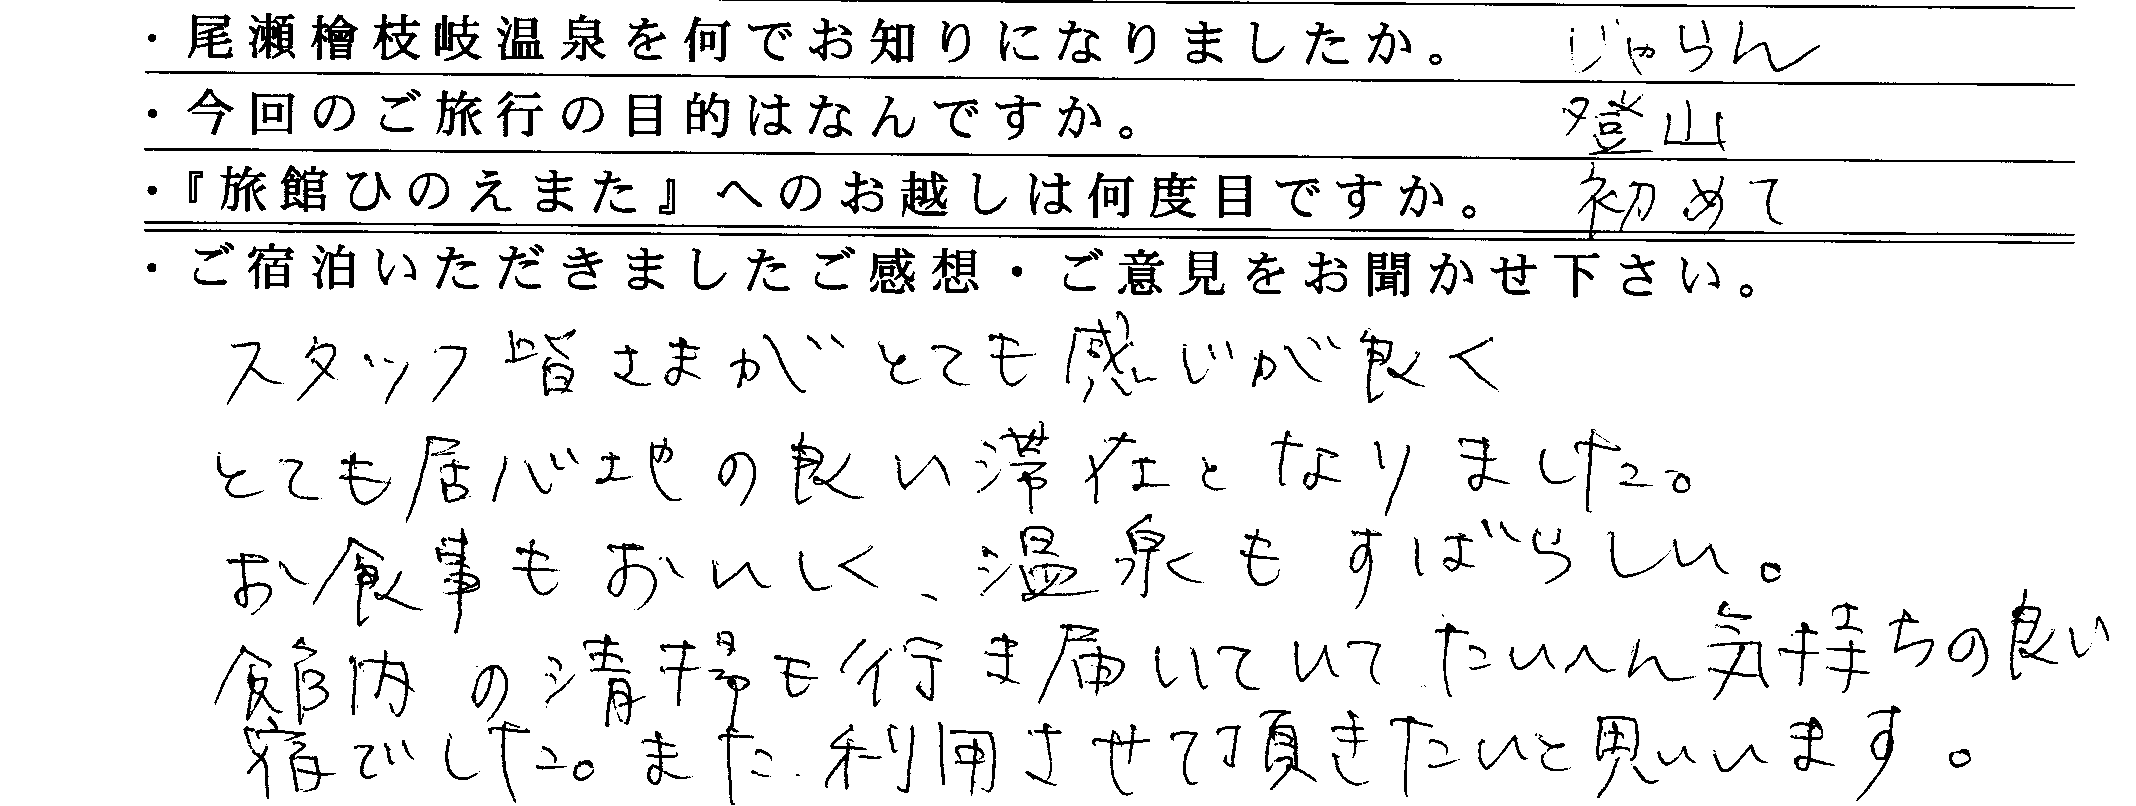 ・尾瀬檜枝岐温泉を何でお知りになりましたか。 じゃらん
・今回のご旅行の目的はなんですか。 登山
・『旅館ひのえまた』へのお越しは何度目ですか。 初めて
・ご宿泊いただきましたご感想・ご意見をお聞かせ下さい。
スタッフ皆さまがとても感じが良く
とても居心地の良い滞在となりました。
お食事もおいしく、温泉もすばらしい。
館内の清掃も行き届いていてたいへん気持ちの良い
宿でした。また利用させて頂きたいと思いいます。